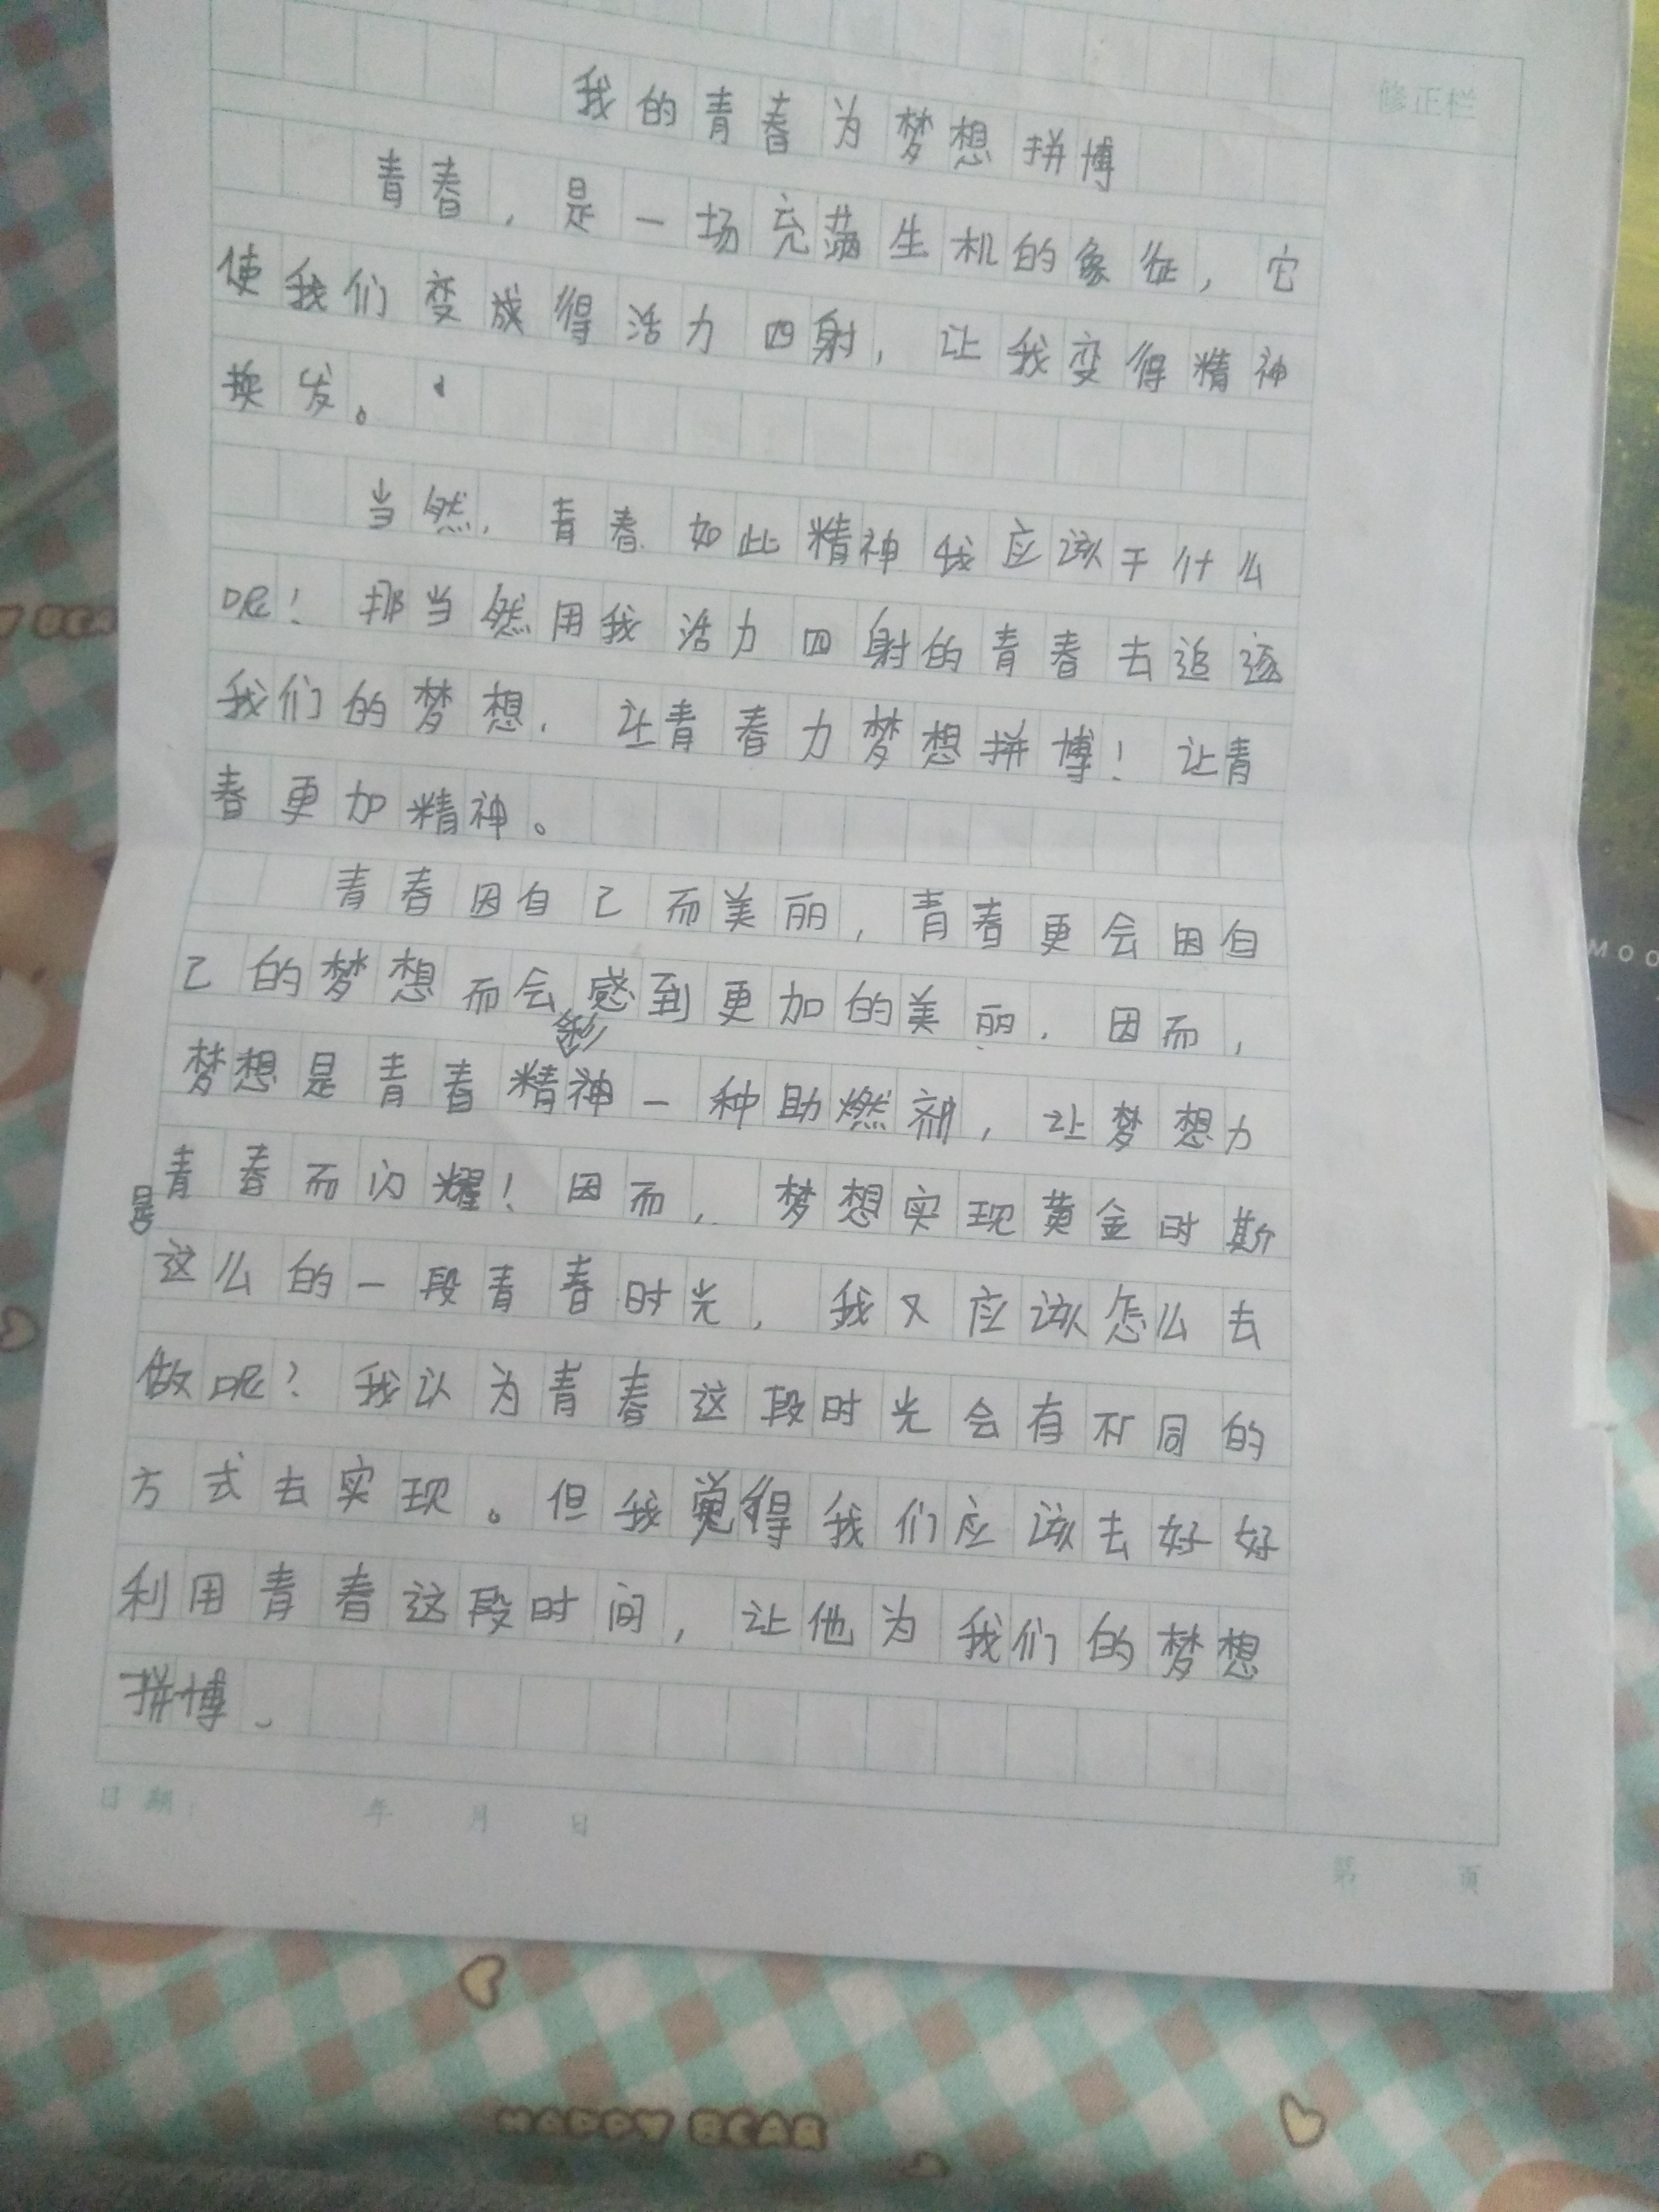 修正栏
我的青春为梦想拼博
青春，是一场充满生机的象征，它
使我们变成得活力四射，让我变得精神
换发。
当然，青春如此精神我应该干什么
呢！那当然用我活力四射的青春去追逐
我们的梦想，让青春力梦想拼博！让青
春更加精神。
青春因自己而美丽，青春更会因自
己的梦想而会感到更加的美丽，因而，
梦想是青春精神一种助燃剂，让梦想力
青春而闪耀！因而，梦想实现黄金时期
是
这么的一段青春时光，我又应该怎么去
做呢？我认为青春这段时光会有不同的
方式去实现。但我觉得我们应该去好好
利用青春这段时间，让他为我们的梦想
拼博、
日期： 年 月 日
第 页
HAPPY BEAR
MOO